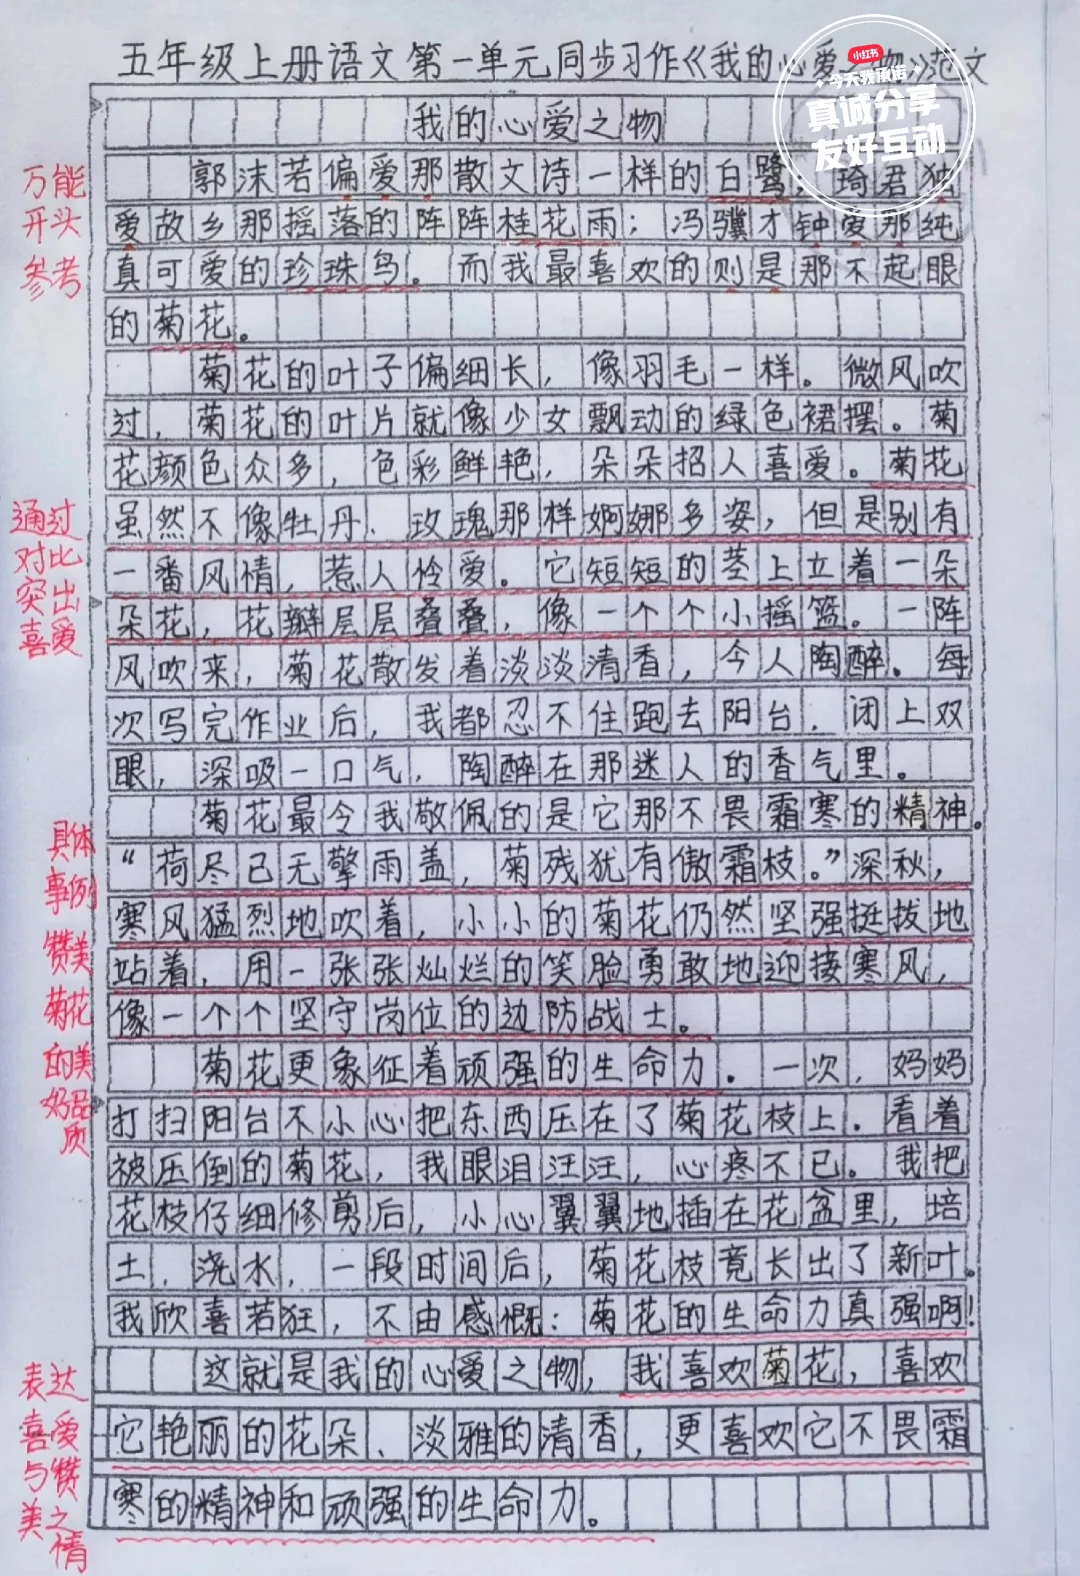 五年级上册语文第一单元同步习作《我的心爱之物》范文
小红书
今天我承诺
真诚分享
友好互动
我的心爱之物
万能
开头
参考
郭沫若偏爱那散文诗一样的白鹭；琦君独
爱故乡那摇落的阵阵桂花雨；冯骥才钟爱那纯
真可爱的珍珠鸟。而我最喜欢的则是那不起眼
的菊花。
菊花的叶子偏细长，像羽毛一样。微风吹
过，菊花的叶片就像少女飘动的绿色裙摆。菊
花颜色众多，色彩鲜艳，朵朵招人喜爱。菊花
通过
对比
突出
喜爱
虽然不像牡丹、玫瑰那样婀娜多姿，但是别有
一番风情，惹人怜爱。它短短的茎上立着一朵
朵花，花瓣层层叠叠，像一个个小摇篮。一阵
风吹来，菊花散发着淡淡清香，令人陶醉。每
次写完作业后，我都忍不住跑去阳台，闭上双
眼，深吸一口气，陶醉在那迷人的香气里。
具体
事例
赞美
菊花
的美
好品
质
菊花最令我敬佩的是它那不畏霜寒的精神。
“荷尽已无擎雨盖，菊残犹有傲霜枝。”深秋，
寒风猛烈地吹着，小小的菊花仍然坚强挺拔地
站着，用一张张灿烂的笑脸勇敢地迎接寒风，
像一个个坚守岗位的边防战士。
菊花更象征着顽强的生命力。一次，妈妈
打扫阳台不小心把东西压在了菊花枝上。看着
被压倒的菊花，我眼泪汪汪，心疼不已。我把
花枝仔细修剪后，小心翼翼地插在花盆里，培
土，浇水，一段时间后，菊花枝竟长出了新叶。
我欣喜若狂，不由感慨：菊花的生命力真强啊！
表达
喜爱
与赞
美之
情
这就是我的心爱之物，我喜欢菊花，喜欢
它艳丽的花朵、淡雅的清香，更喜欢它不畏霜
寒的精神和顽强的生命力。